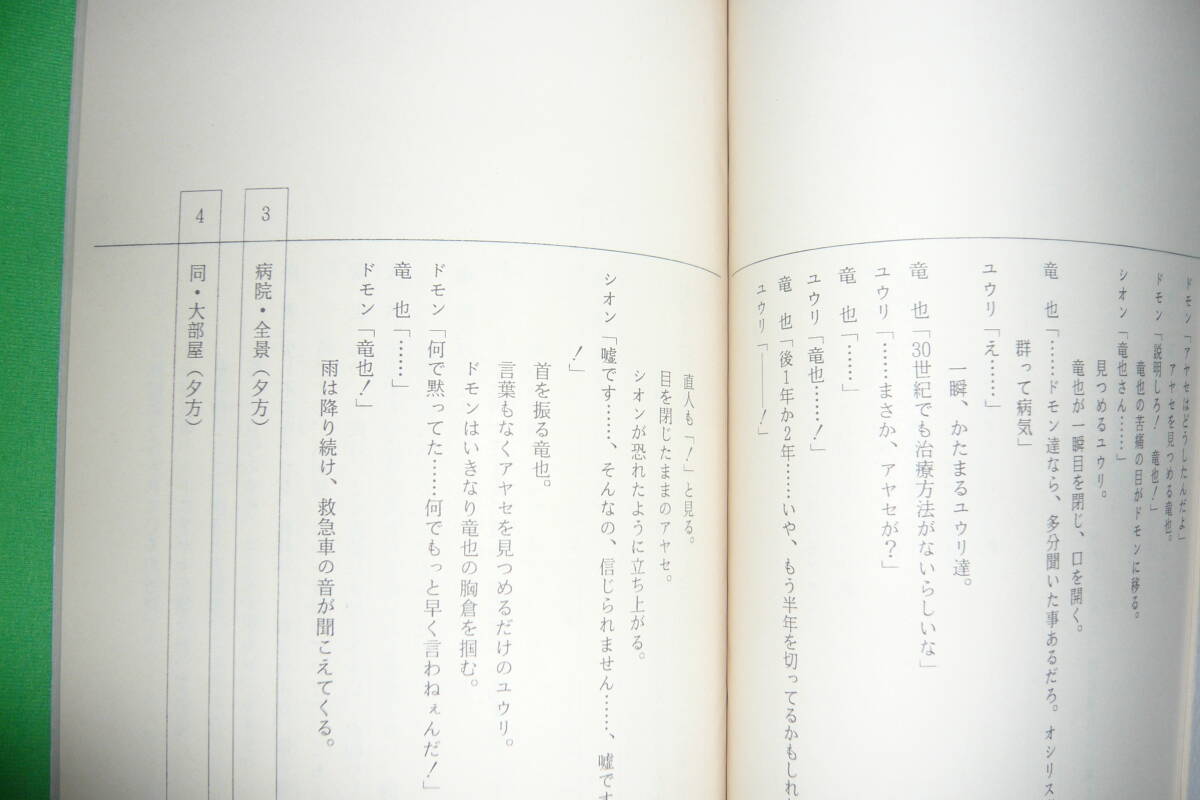 ドモン「アヤセはどうしたんだよ」
アヤセを見つめる竜也。
ドモン「説明しろ！　竜也！」
竜也の苦痛の目がドモンに移る。
シオン「竜也さん……」
見つめるユウリ。
竜也が一瞬目を閉じ、口を開く。
竜　也「……ドモン達なら、多分聞いた事あるだろ。オシリス
群って病気」
ユウリ「え……」
一瞬、かたまるユウリ達。
竜　也「30世紀でも治療方法がないらしいな」
ユウリ「……まさか、アヤセが？」
竜　也「……」
ユウリ「竜也……！」
竜　也「後1年か2年……いや、もう半年を切ってるかもしれ
ユウリ「――！」
直人も「！」と見る。
目を閉じたままのアヤセ。
シオンが恐れたように立ち上がる。
シオン「嘘です……、そんなの、信じられません……、嘘です
！」
首を振る竜也。
言葉もなくアヤセを見つめるだけのユウリ。
ドモンはいきなり竜也の胸倉を掴む。
ドモン「何で黙ってた……何でもっと早く言わねぇんだ！」
竜　也「……」
ドモン「竜也！」
雨は降り続け、救急車の音が聞こえてくる。
3　病院・全景（夕方）
4　同・大部屋（夕方）